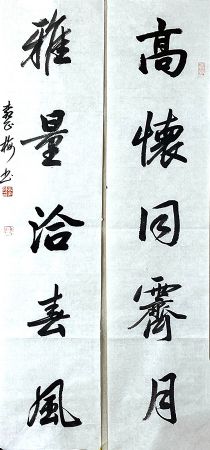 高懷同霽月
雅量洽春風
書